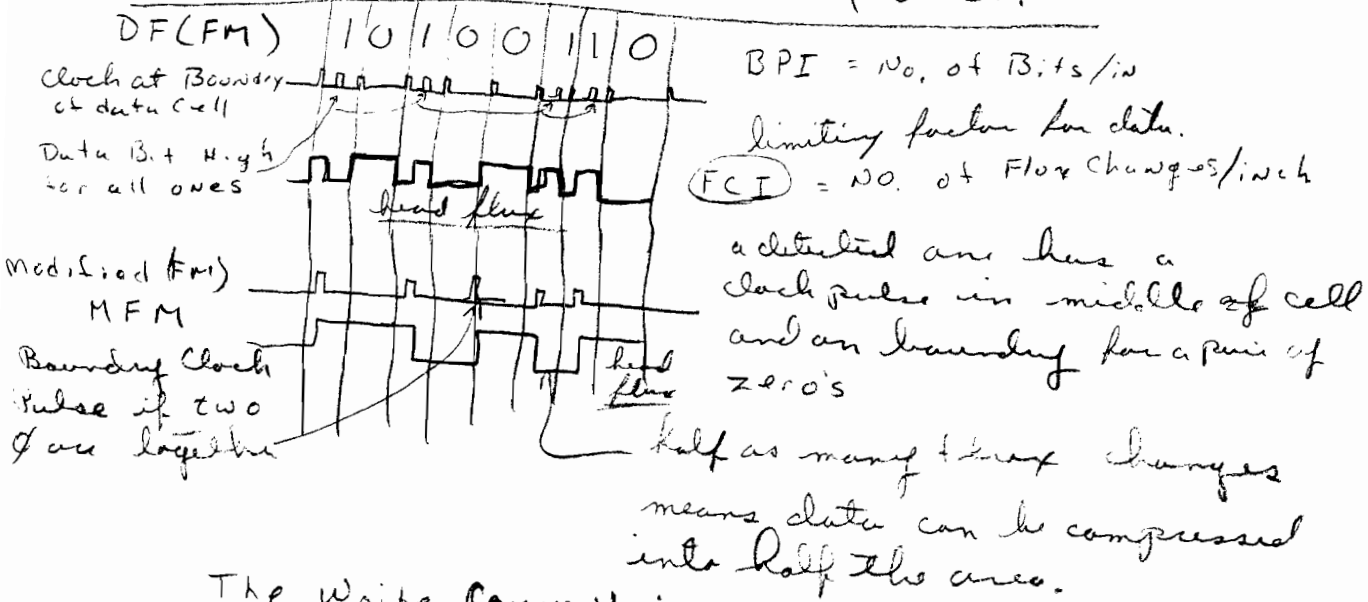 DF(FM) 1 0 1 0 0 1 1 0
Clock at Boundry
of data Cell
Data Bit High
for all ones
head flux
Modified (FM)
MFM
Boundry Clock
Pulse if two
Ø are together
head
flux
BPI = No. of Bits/in
limiting factor for data.
FCI = NO. of Flux Changes/inch
a detected one has a
clock pulse in middle of cell
and on boundry for a pair of
zero's
half as many changes
means data can be compressed
into half the area.
The Write